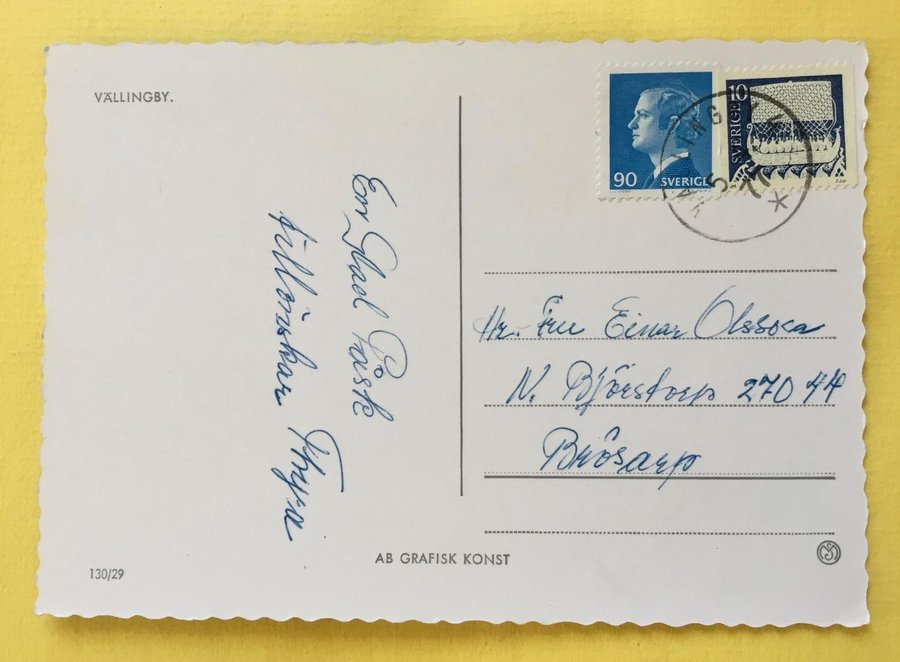 VÄLLINGBY.
En Glad Påsk
tillönskar Thyra
90 SVERIGE
10
SVERIGE
Hr. Fru Einar Olsson
N. Björstorp 270 44
Brösarp
AB GRAFISK KONST
130/29